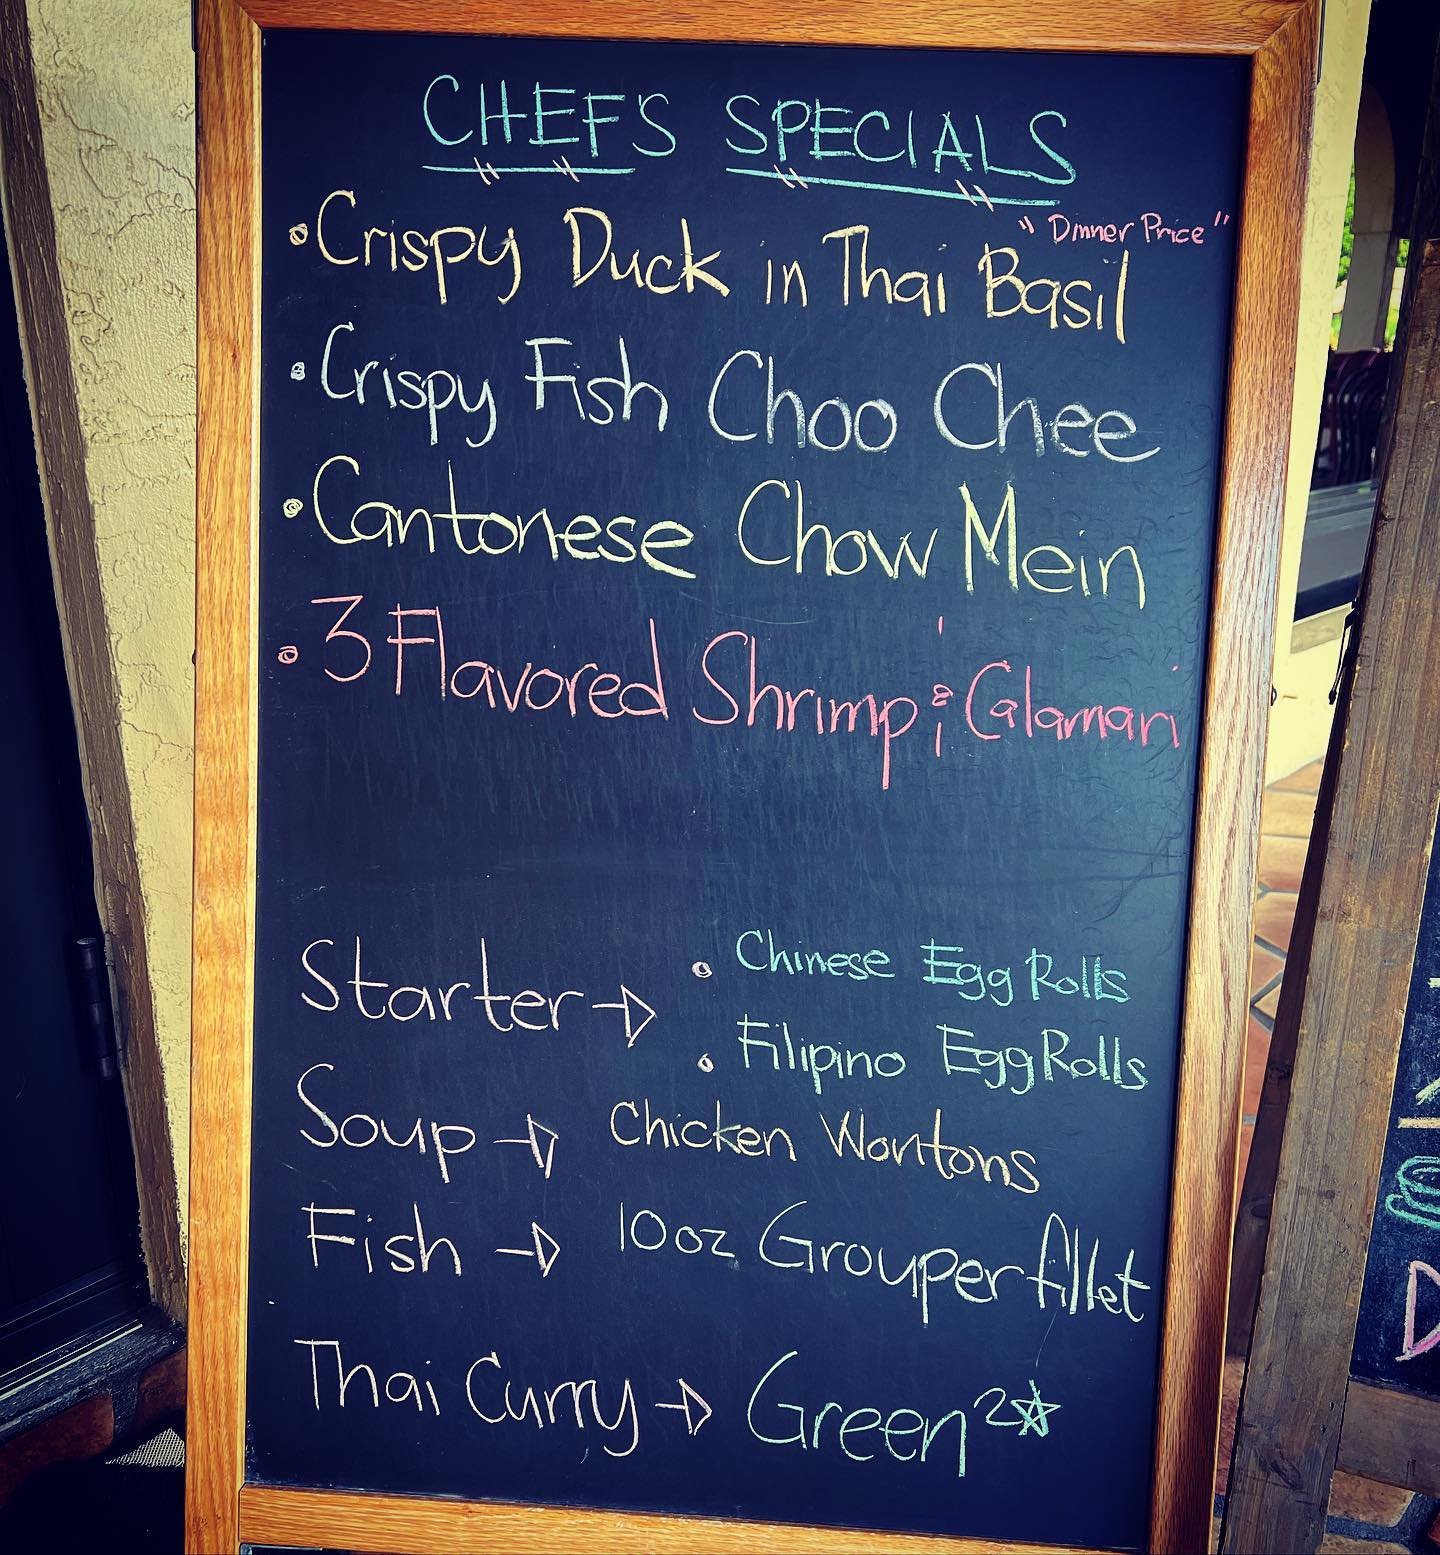 CHEF'S SPECIALS
"Dinner Price"
• Crispy Duck in Thai Basil
• Crispy Fish Choo Chee
• Cantonese Chow Mein
• 3 Flavored Shrimp & Calamari
Starter → • Chinese Egg Rolls
• Filipino Egg Rolls
Soup → Chicken Wontons
Fish → 10oz Grouper fillet
Thai Curry → Green 2☆